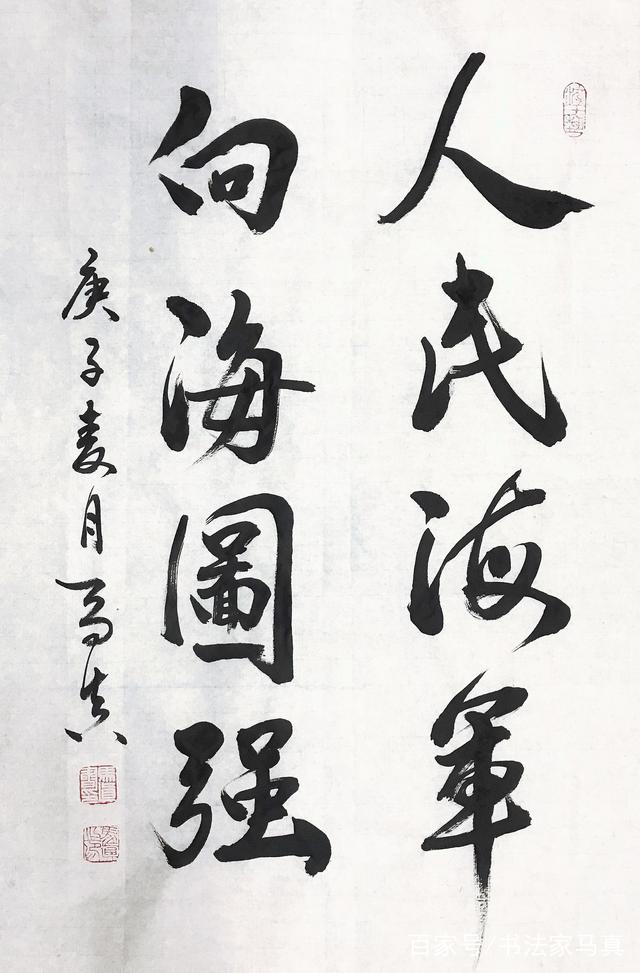 人民海軍
向海圖强
庚子麦月马真
百家号/书法家马真